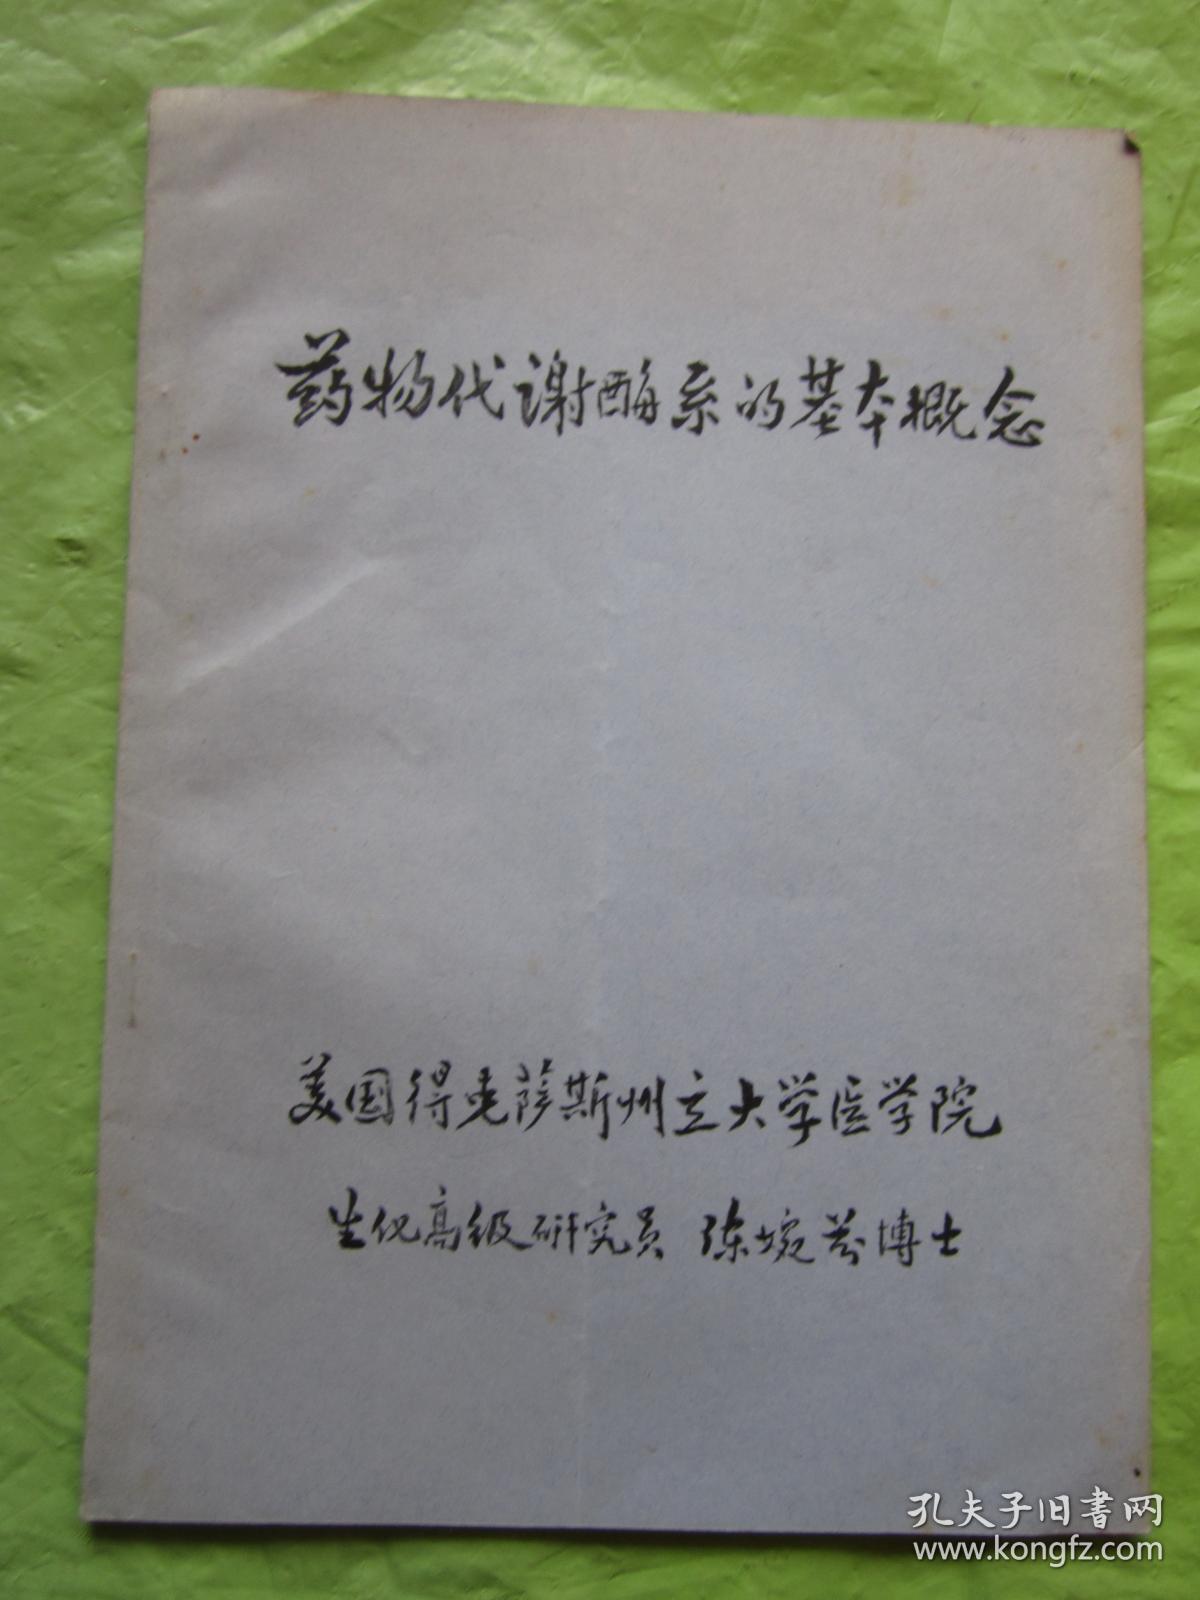 药物代谢酶系的基本概念
美国得克萨斯州立大学医学院
生化高级研究员 陈婉芬博士
孔夫子旧书网
www.kongfz.com